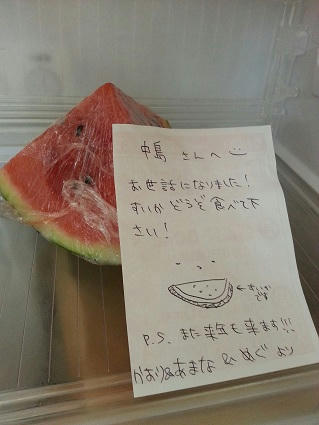 中島 さんへ
お世話になりました!
すいか どうぞ 食べて下
さい!
←すいか
です
P.S. また来年も来ます!!!
かおり&あまな & めぐ より